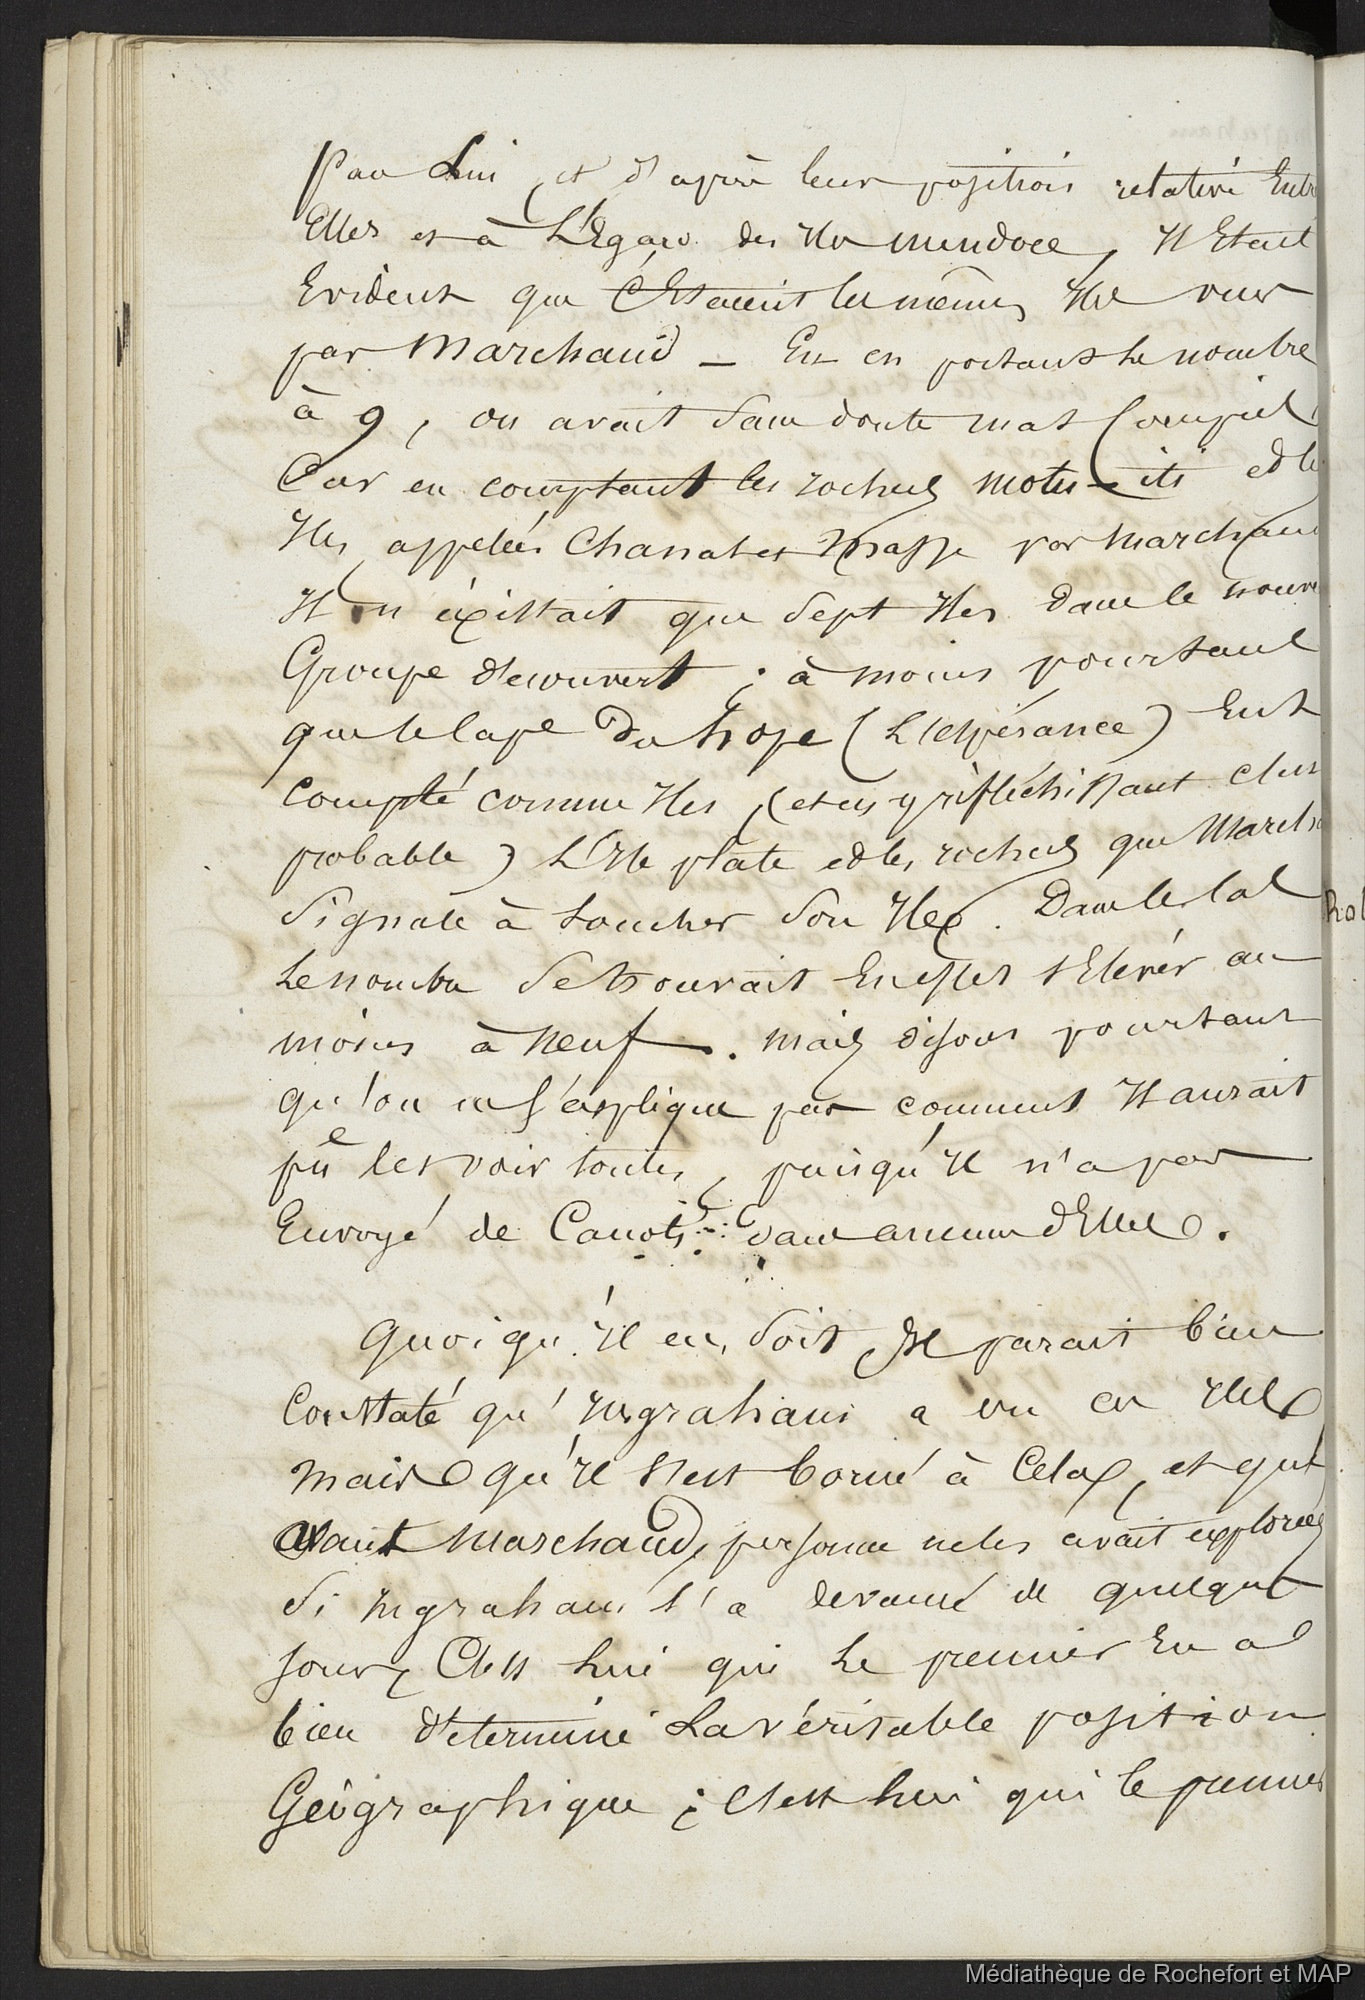 Par Lui, et d'après leur positions relative Entre
Elles et à L'Egard des Iles mendoce, Il Etait
Evident que C'Etaient les mêmes Iles vues
par Marchand _ Et en portant Le nombre
à 9, on avait Sans doute mal Compté,
Car en comptant les rochers motu-iti et les
Iles appelées Chanal et Masse par Marchand
Il n'éxistait que Sept Iles dans le nouveau
Groupe découvert ; à moins pourtant
que le Cape Du hope (L'Espérance) Eut
Compté comme Iles, (et en y réfléchissant c'est
probable) L'Ile plate et les rochers que March
Signale à toucher Son Ile. Dans le cas
Le nombre Se trouvait En effet s'Elever au
moins à neuf. mais disons pourtant
qu'on ne S'explique pas comment Il aurait
pu les voir toutes, puisqu'Il n'a pas
Envoyé de Canots dans aucune d'Elles.
Quoiqu'Il en Soit Il parait bien
Constaté qu'Ingraham a vu ces Iles
mais qu'Il s'est borné à Cela, et que
avant Marchand, personne ne les avait explorées
Si Ingraham l'a devancé de quelques
jours, C'est Lui qui Le premier En a
bien déterminé La véritable position
Géographique ; C'est Lui qui le premier
hal
Médiathèque de Rochefort et MAP